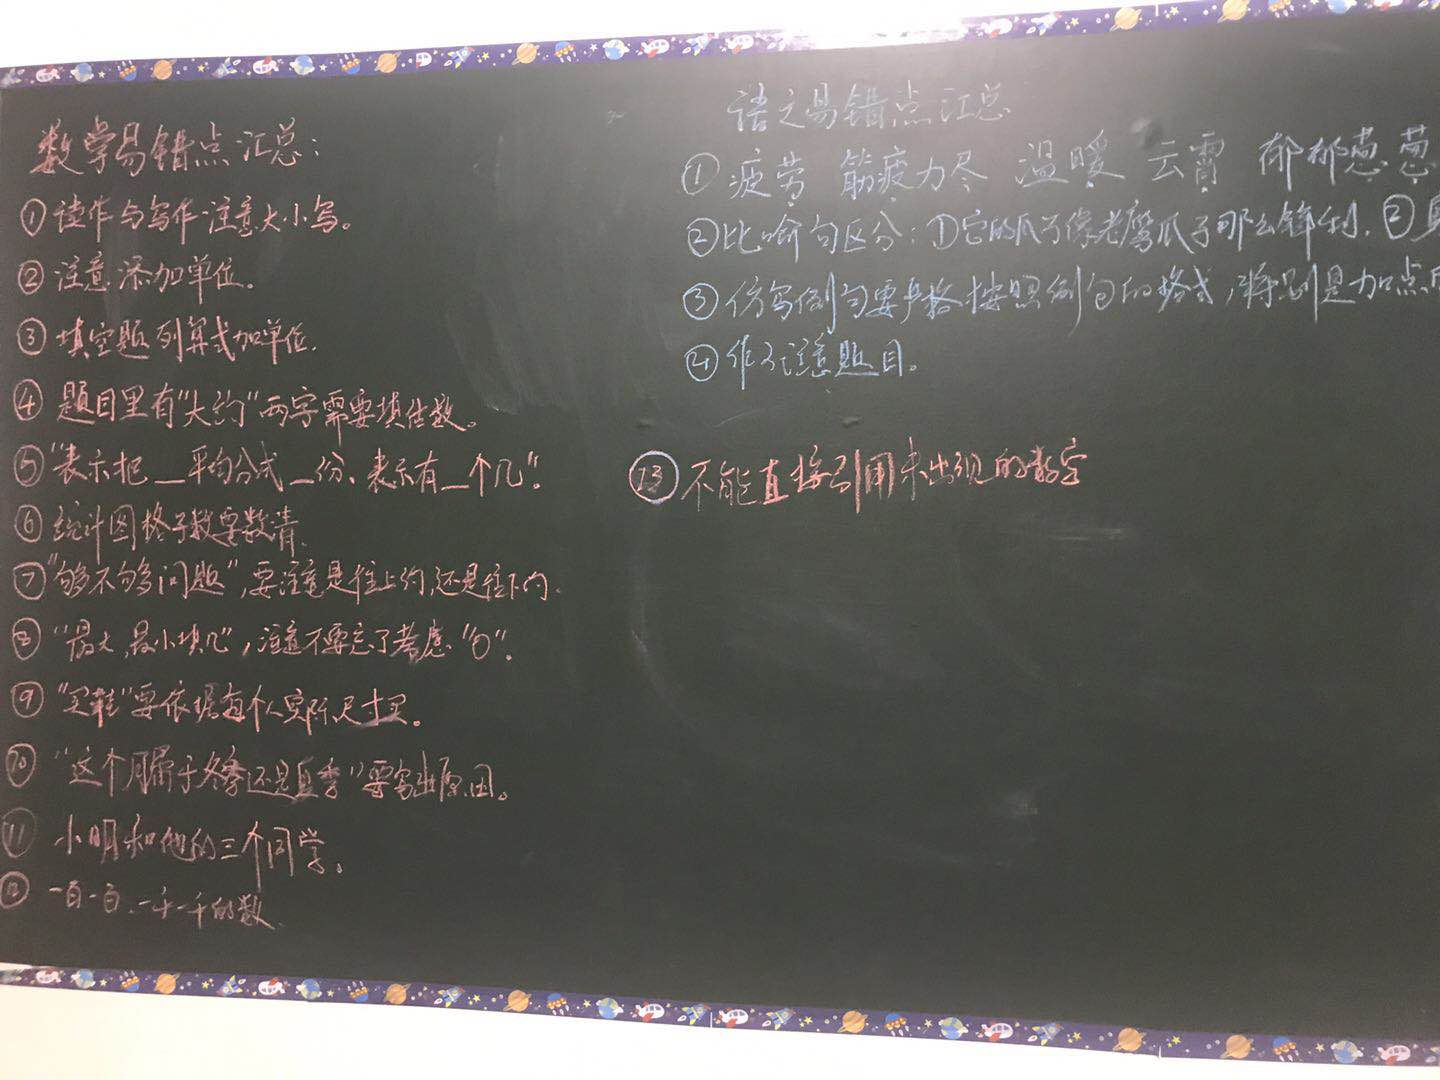 数学易错点汇总：
①读作与写作注意大小写。
②注意添加单位。
③填空题列算式加单位.
④题目里有"大约"两字需要填估数。
⑤"表示把__平均分成__份、表示有__个几".
⑥统计图格子数字数清.
⑦"够不够问题",要注意是往上约,还是往下约.
⑧"最大,最小填几",注意不要忘了考虑"0".
⑨"买鞋"要依据每个人实际尺寸买。
⑩"这个月属于冬季还是夏季"要写出原因。
⑪小明和他的三个同学。
⑫一百一百、一千一千的数.
语文易错点汇总
①疲劳 筋疲力尽 温暖 云霄 郁郁葱葱
②比喻句区分：①它的爪子像老鹰爪子那么锋利.②
③仿写例句要严格按照例句的格式,特别是加点
④作文注意题目。
⑬不能直接引用未出现的数字